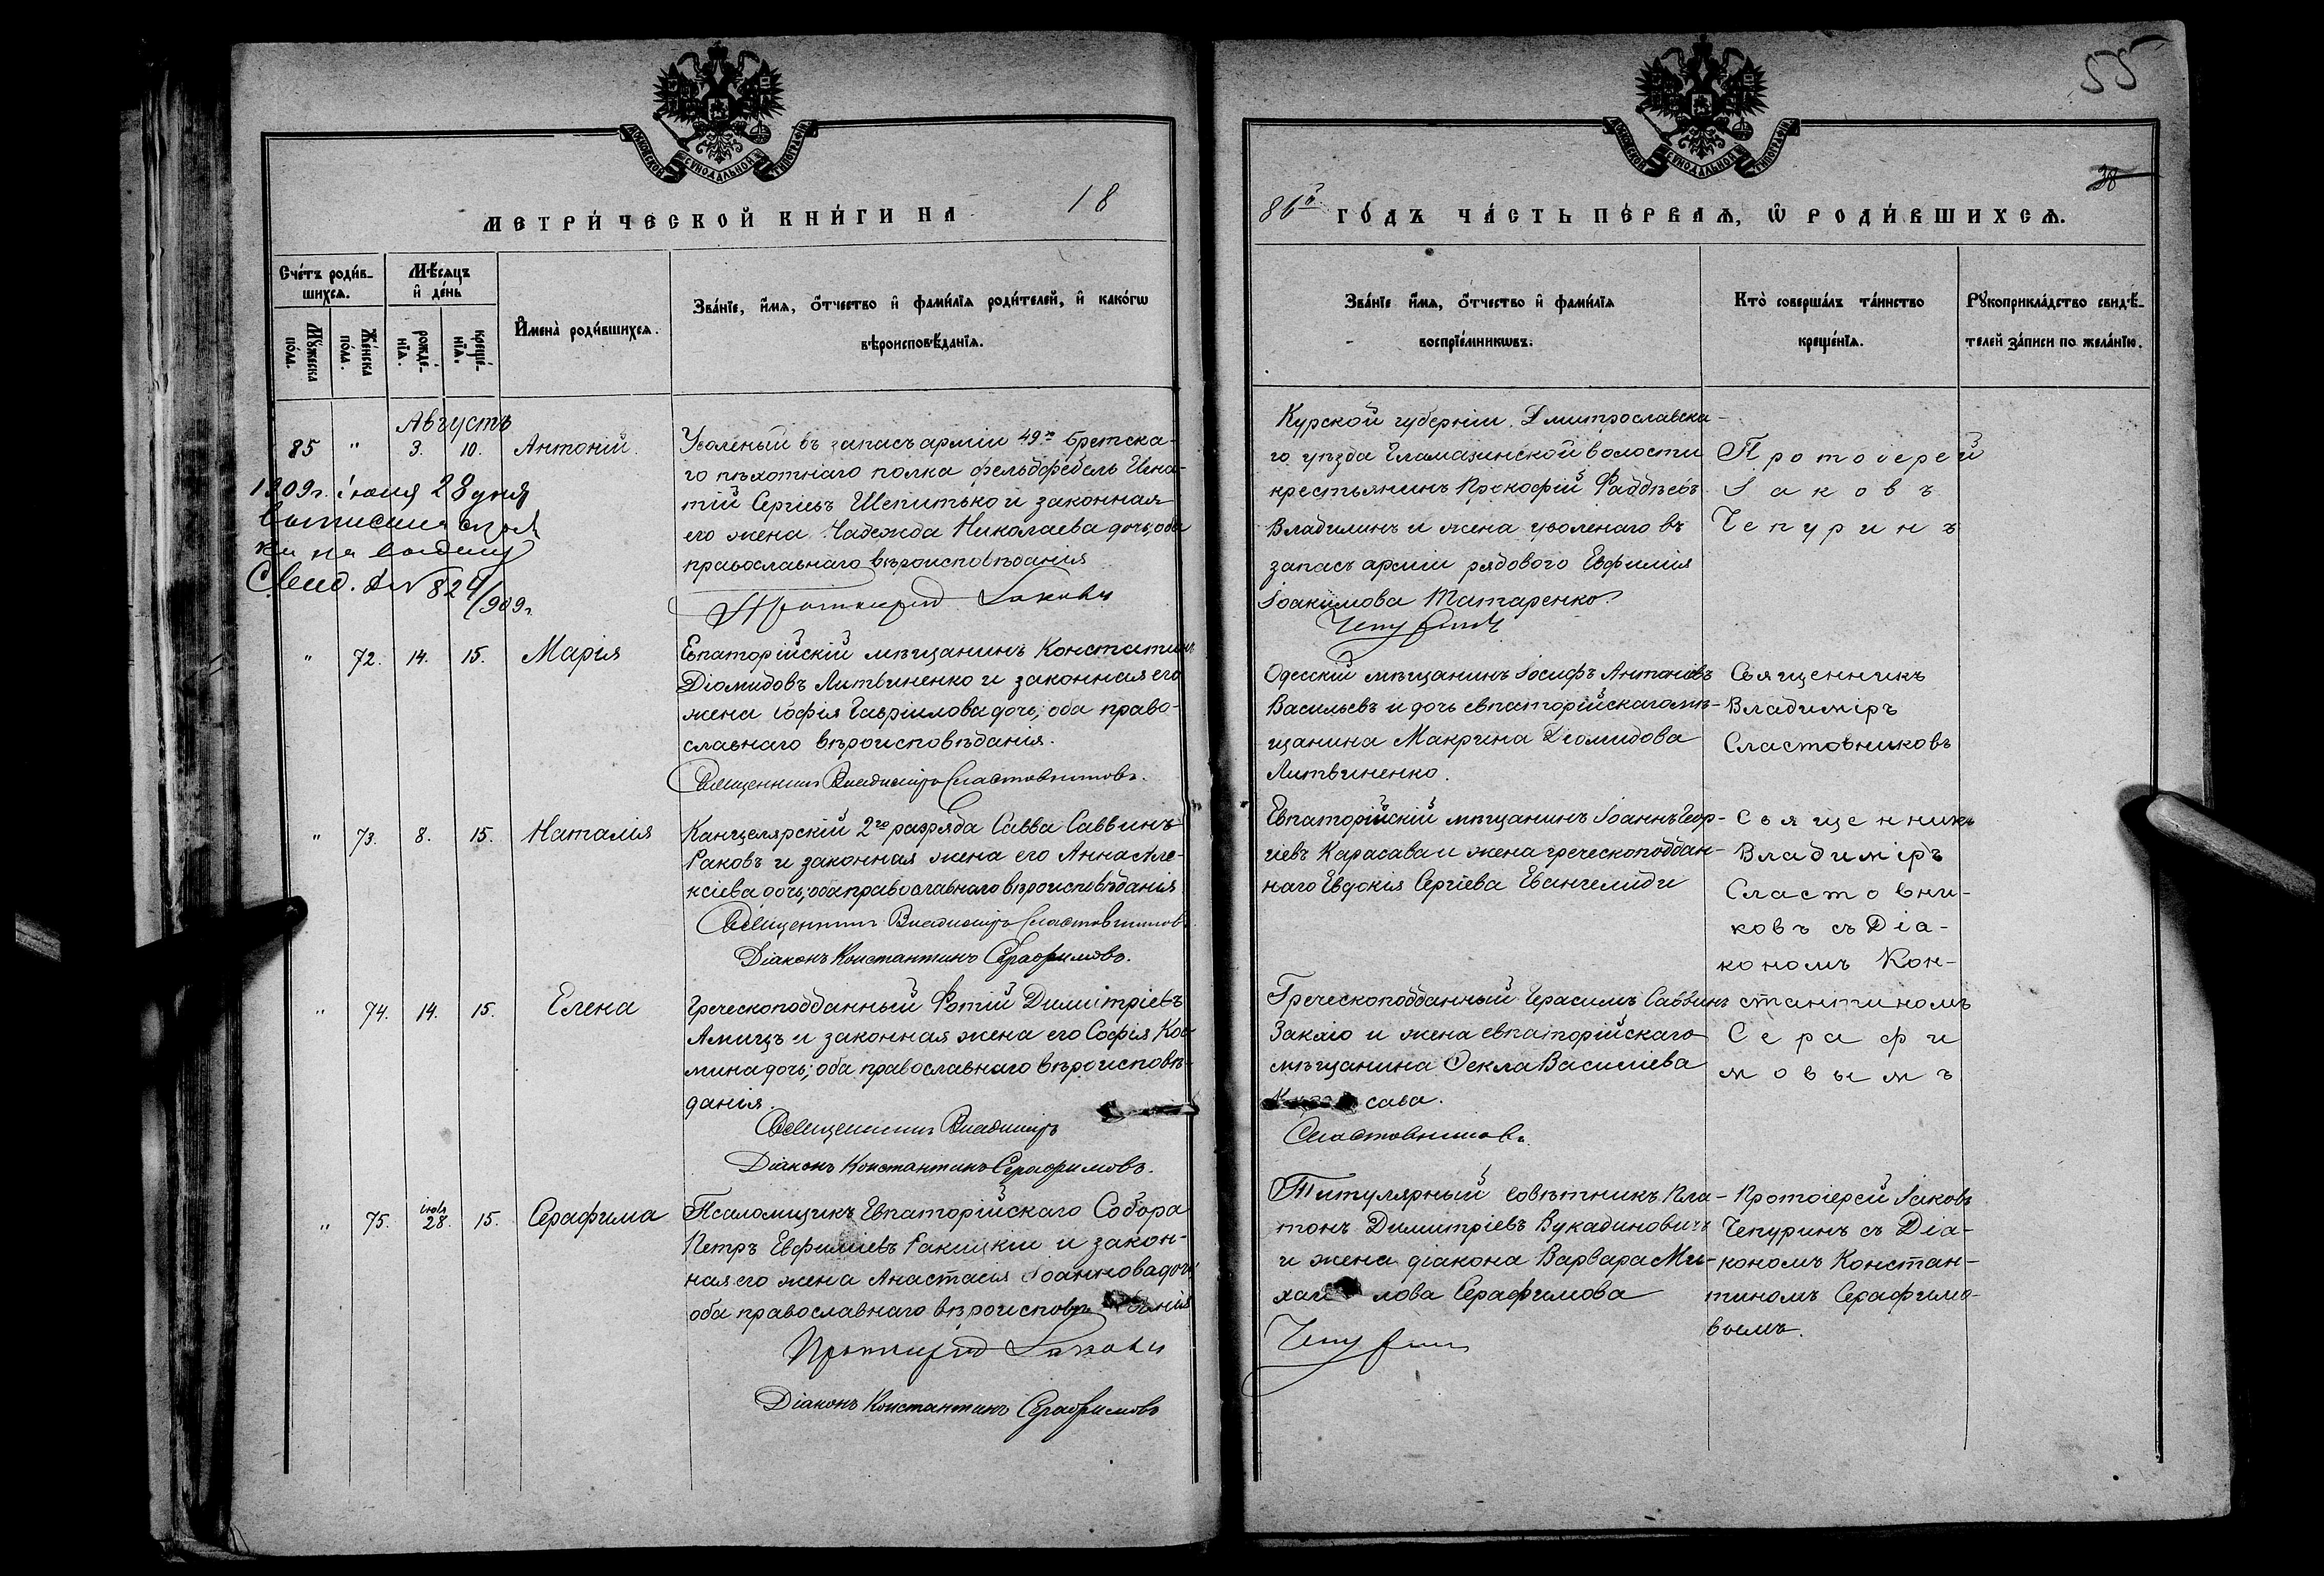 55
38
МОСКОВСКОЙ СУНОДАЛЬНОЙ ТИПОГРАФІИ
МОСКОВСКОЙ СУНОДАЛЬНОЙ ТИПОГРАФІИ
МЕТРИ́ЧЕСКОЙ КНИ́ГИ НА 18
86й ГО́ДЪ ЧА́СТЬ ПЕ́РВАЯ, Ѡ РОДИ́ВШИХСЯ.
Сче́тъ роди́в-
шихся.
Му́жеска по́ла.
Же́нска по́ла.
Мѣ́сяцъ
и де́нь
рожде́-
нїя.
креще́-
нїя.
Имена̀ роди́вшихся.
Зва́нїе, и́мя, о́тчество и фами́лїя роди́телей, и како́гѡ
вѣроисповѣ́данїя.
Зва́нїе и́мя, о́тчество и фами́лїя
воспрїе́мникѡвъ.
Кто̀ соверша́лъ та́инство
креще́нїя.
Рꙋкоприкла́дство свидѣ́-
телей за́писи по жела́нїю.
Августъ
85 " 3. 10. Антоній.
Уволеный въ запасъ арміи 49го Бретска-
го пѣхотнаго полка фельдфебель Игна-
тій Сергіевъ Шепитько и законная
его жена Надежда Николаева дочь, оба
православнаго вѣроисповѣданія
Протоіерей Іаковъ
1909г. іюня 28 дня
выписана
на
Свид. № 824/909г.
Курской губерніи Дмитрославска-
го уѣзда Гламазинской волости
крестьянинъ Прокофій Фаддѣевъ
Владилинъ и жена уволенаго въ
запасъ арміи рядового Евфимія
Іоакимова Татаренко.
Чепуринъ
Протоіерей
Іаковъ
Чепуринъ
" 72. 14. 15. Марія
Евпаторійскій мѣщанинъ Константинъ
Діомидовъ Литвиненко и законная его
жена Софія Гавріилова дочь, оба право-
славнаго вѣроисповѣданія.
Священникъ Владиміръ Сластовниковъ.
Одесскій мѣщанинъ Іосифъ Антоновъ
Васильевъ и дочь евпаторійскаго мѣ-
щанина Макрина Діомидова
Литвиненко.
Священникъ
Владиміръ
Сластовниковъ
" 73. 8. 15. Наталія
Канцелярскій 2го разряда Савва Саввинъ
Раковъ и законная жена его Анна Але-
ксіева дочь, оба православнаго вѣроисповѣданія
Священникъ Владиміръ Сластовниковъ
Діаконъ Константинъ Серафимовъ.
Евпаторійскій мѣщанинъ Іоаннъ Геор-
гіевъ Карасава и жена греческоподдан-
наго Евдокія Сергіева Евангелиди
Священникъ
Владиміръ
Сластовни-
ковъ съ Діа-
кономъ Кон-
стантиномъ
Серафи
мовымъ
" 74. 14. 15. Елена
Греческоподданный Фотій Димитріевъ
Амицъ и законная жена его София Кос-
мина дочь; оба православнаго вѣроисповѣ-
данія.
Священникъ Владиміръ
Діаконъ Константинъ Серафимовъ.
Греческоподданный Герасимъ Саввинъ
Закліо и жена евпаторійскаго
мѣщанина Ѳекла Василіева
сава.
Сластовниковъ.
" 75. іюля 28. 15. Серафима
Псаломщикъ Евпаторійскаго Собора
Петръ Евфиміевъ Ракицкій и закон-
ная его жена Анастасія Іоаннова дочь,
оба православнаго вѣроисповѣданія
Протоіерей Іаковъ
Діаконъ Константинъ Серафимовъ
Титулярный совѣтникъ Пла-
тонъ Димитріевъ Вукадиновичъ
и жена діакона Варвара Ми-
хаилова Серафимова
Чепуринъ
Протоіерей Іаковъ
Чепуринъ съ Діа-
кономъ Констан-
тиномъ Серафимо-
вымъ.